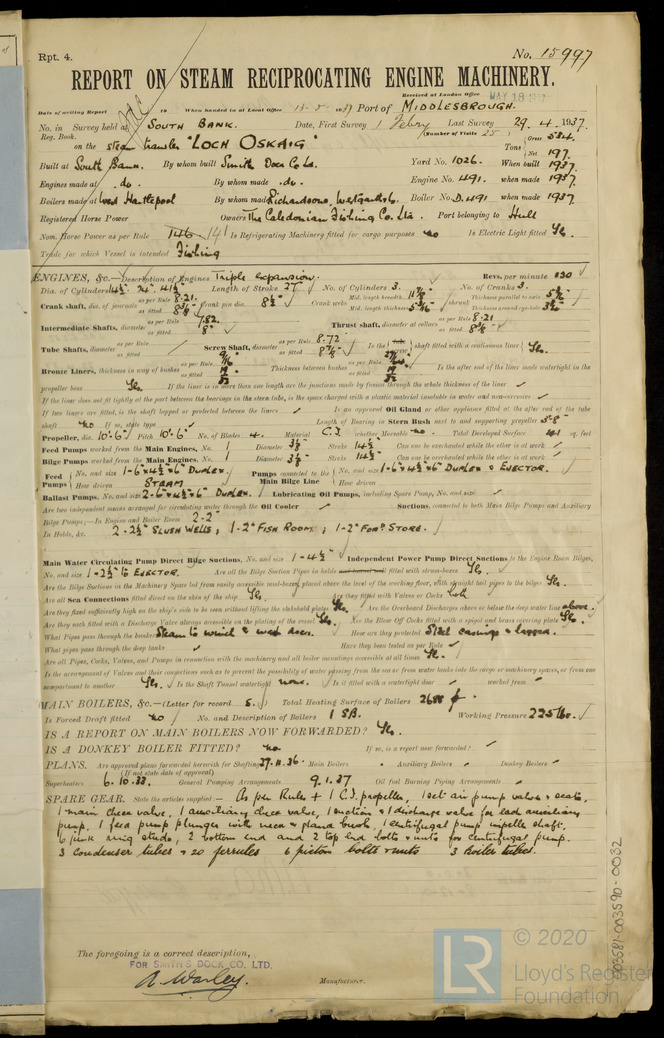 Rpt. 4.
No. 15997
REPORT ON STEAM RECIPROCATING ENGINE MACHINERY.
Received at London Office
MAY 18 1937
Date of writing Report 19 When handed in at Local Office 13-5-1937 Port of MIDDLESBROUGH.
No. in Survey held at SOUTH BANK. Date, First Survey 1 Febry Last Survey 29.4.1937.
Reg. Book. (Number of Visits 25)
on the steam trawler "LOCH OSKAIG" Tons Gross 534. Net 197.
Built at South Bank. By whom built Smiths Dock Co Ld. Yard No. 1026. When built 1937.
Engines made at do. By whom made do. Engine No. 491. when made 1937.
Boilers made at West Hartlepool By whom made Richardsons, Westgarth & Co. Boiler No. D.491 when made 1937
Registered Horse Power Owners The Caledonian Fishing Co. Ltd. Port belonging to Hull
Nom. Horse Power as per Rule 146 141 Is Refrigerating Machinery fitted for cargo purposes no Is Electric Light fitted Yes.
Trade for which Vessel is intended Fishing
ENGINES, &c.—Description of Engines Triple expansion. Revs. per minute 130
Dia. of Cylinders 14½" 24" 41½" Length of Stroke 27" No. of Cylinders 3. No. of Cranks 3.
Crank shaft, dia. of journals as per Rule 8.21. as fitted 8⅜" Crank pin dia. 8½" Crank webs Mid. length breadth Mid. length thickness 5⅜" shrunk Thickness parallel to axis 5⅜" Thickness around eye-hole
Intermediate Shafts, diameter as per Rule 7.82. as fitted 8" Thrust shaft, diameter at collars as per Rule 8.21 as fitted 8⅜"
Tube Shafts, diameter as per Rule as fitted Screw Shaft, diameter as per Rule 8.72 as fitted 8⅞" Is the shaft fitted with a continuous liner Yes.
Bronze Liners, thickness in way of bushes as per Rule as fitted Thickness between bushes as per Rule as fitted Is the after end of the liner made watertight in the
propeller boss Yes. If the liner is in more than one length are the junctions made by fusion through the whole thickness of the liner
If the liner does not fit tightly at the part between the bearings in the stern tube, is the space charged with a plastic material insoluble in water and non-corrosive
If two liners are fitted, is the shaft lapped or protected between the liners Is an approved Oil Gland or other appliance fitted at the after end of the tube
shaft no If so, state type Length of Bearing in Stern Bush next to and supporting propeller 3'-8"
Propeller, dia. 10'-6" Pitch 10'-6" No. of Blades 4. Material C.I. whether Moveable no. Total Developed Surface 41 sq. feet
Feed Pumps worked from the Main Engines, No. 1 Diameter 3½" Stroke 14½" Can one be overhauled while the other is at work
Bilge Pumps worked from the Main Engines, No. 1 Diameter 3½" Stroke 14½" Can one be overhauled while the other is at work
Feed Pumps No. and size 1-6"x4½"x6" DUPLEX. How driven STEAM Pumps connected to the Main Bilge Line No. and size 1-6"x4½"x6" DUPLEX & EJECTOR. How driven
Ballast Pumps, No. and size 2-6"x4½"x6" DUPLEX. Lubricating Oil Pumps, including Spare Pump, No. and size
Are two independent means arranged for circulating water through the Oil Cooler Suctions, connected to both Main Bilge Pumps and Auxiliary
Bilge Pumps;—In Engine and Boiler Room 2-2"
In Holds, &c. 2-2½" SLUSH WELLS; 1-2" FISH ROOM; 1-2" FOR'D STORE.
Main Water Circulating Pump Direct Bilge Suctions, No. and size 1-4½" Independent Power Pump Direct Suctions to the Engine Room Bilges,
No. and size 1-2½" to EJECTOR. Are all the Bilge Suction Pipes in holds fitted with strum-boxes Yes.
Are the Bilge Suctions in the Machinery Space led from easily accessible mud-boxes, placed above the level of the working floor, with straight tail pipes to the bilges Yes.
Are all Sea Connections fitted direct on the skin of the ship. Yes. Are they fitted with Valves or Cocks both
Are they fixed sufficiently high on the ship's side to be seen without lifting the stokehold plates Yes. Are the Overboard Discharges above or below the deep water line above.
Are they each fitted with a Discharge Valve always accessible on the plating of the vessel Yes. Are the Blow Off Cocks fitted with a spigot and brass covering plate Yes.
What Pipes pass through the bunkers Steam to winch & wash down. How are they protected Steel casings & lagged.
What pipes pass through the deep tanks Have they been tested as per Rule
Are all Pipes, Cocks, Valves, and Pumps in connection with the machinery and all boiler mountings accessible at all times Yes.
Is the arrangement of Valves and their connections such as to prevent the possibility of water passing from the sea or from water tanks into the cargo or machinery spaces, or from one
compartment to another Yes. Is the Shaft Tunnel watertight none. Is it fitted with a watertight door worked from
MAIN BOILERS, &c.—(Letter for record S.) Total Heating Surface of Boilers 2688
Is Forced Draft fitted no No. and Description of Boilers 1 SB. Working Pressure 225 lbs.
IS A REPORT ON MAIN BOILERS NOW FORWARDED? Yes.
IS A DONKEY BOILER FITTED? no If so, is a report now forwarded?
PLANS. Are approved plans forwarded herewith for Shafting 27.11.36. Main Boilers Auxiliary Boilers Donkey Boilers
(If not state date of approval)
Superheaters 6.10.33. General Pumping Arrangements 9.1.37 Oil fuel Burning Piping Arrangements
SPARE GEAR. State the articles supplied:— As per Rules + 1 C.I. propeller, 1 set air pump valves & seats,
1 main check valve, 1 auxiliary check valve, 1 suction & 1 discharge valve for each auxiliary
pump, 1 feed pump plunger with neck & gland bush, 1 centrifugal pump impeller shaft,
6 junk ring studs, 2 bottom end and 2 top end bolts & nuts for centrifugal pump.
3 condenser tubes & 20 ferrules 6 piston bolts & nuts 3 boiler tubes.
The foregoing is a correct description,
FOR SMITH'S DOCK CO. LTD.
Manufacturer.
003581-003590-0032
LR
© 2020
Lloyd's Register
Foundation